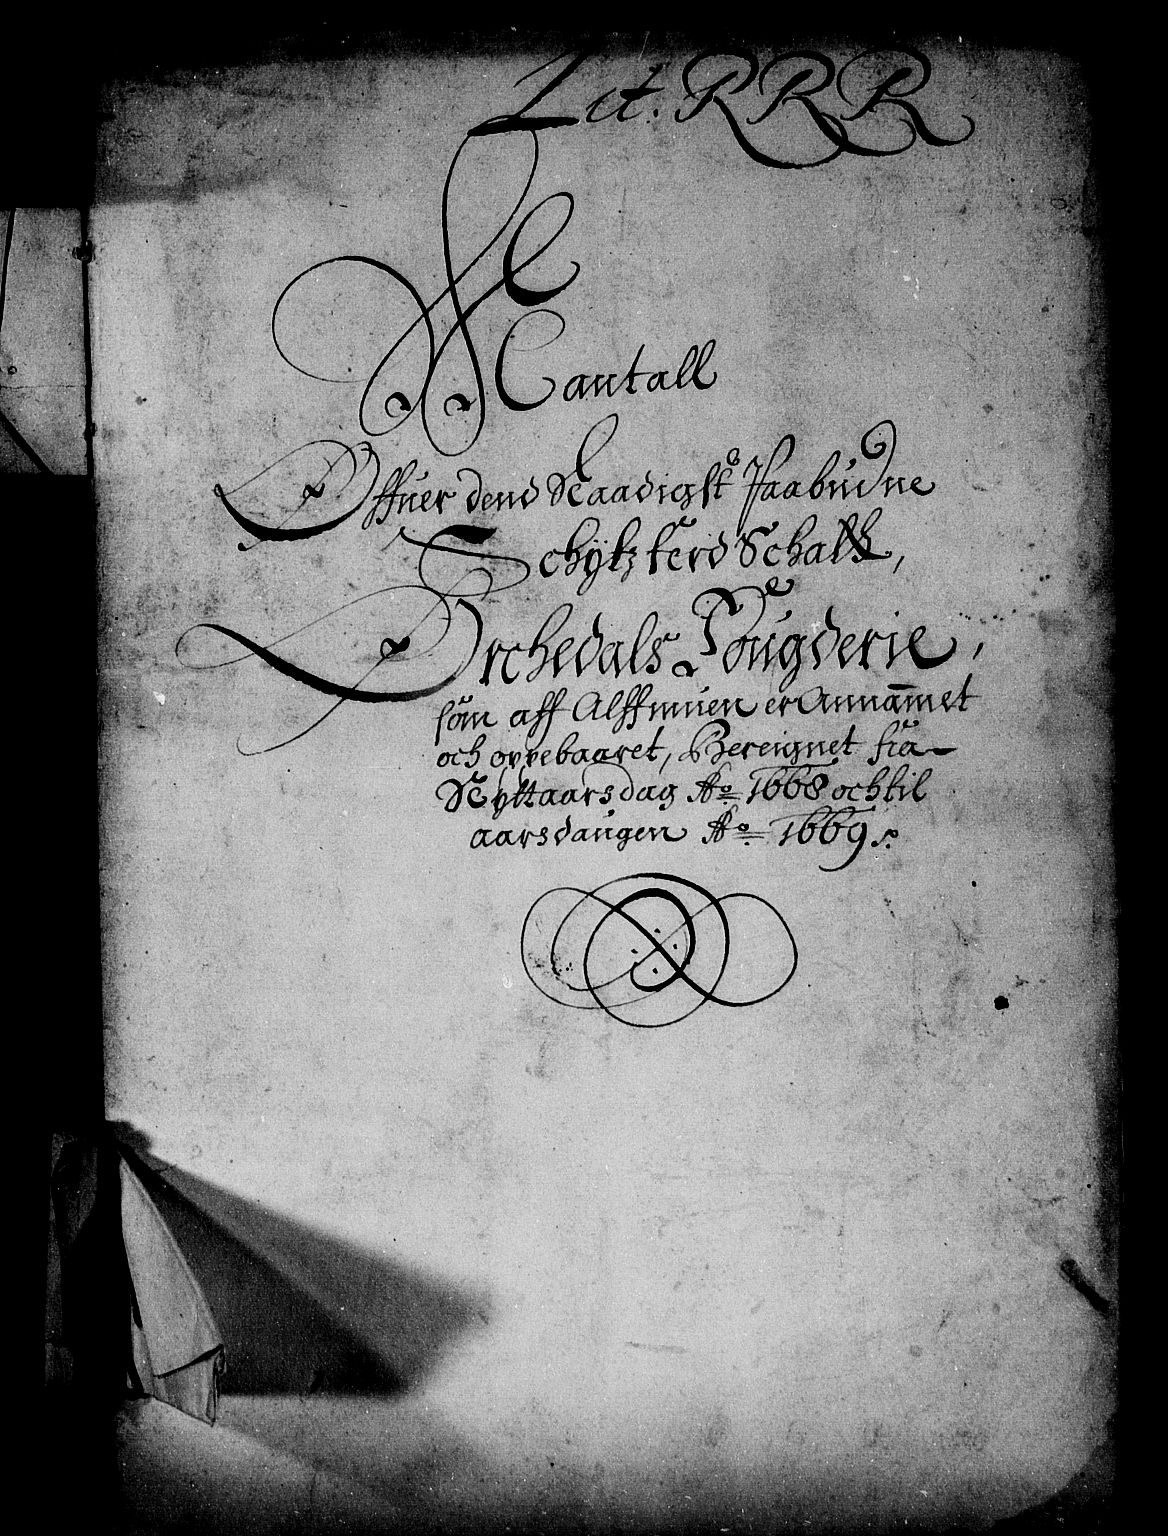 Lit. RRR
Mantall
Offuer dend Naadigst Paabudne
Schytzferd Schatt,
Orchedals Fougderie,
som aff Allmuen er Annammet
och oppebaaret, Bereignet fra
Nyttaarsdag Ao 1668 och til
aarsdaugen Ao 1669.